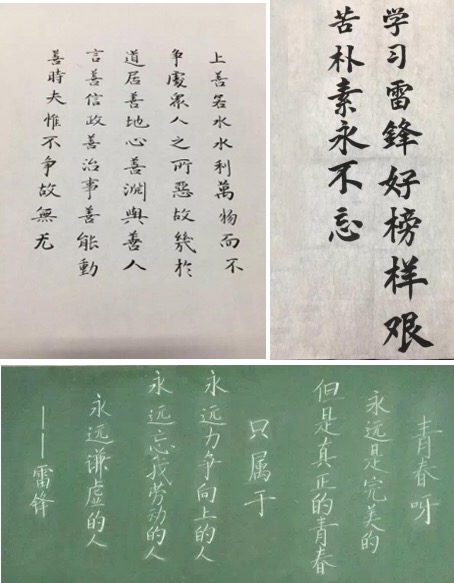 上善若水水利萬物而不
争處衆人之所惡故幾於
道居善地心善淵與善人
言善信政善治事善能動
善時夫惟不争故無尤
学习雷鋒好榜样艰
苦朴素永不忘
青春呀
永远是完美的
但是真正的青春
只属于
永远力争向上的人
永远忘我劳动的人
永远谦虚的人
——雷锋